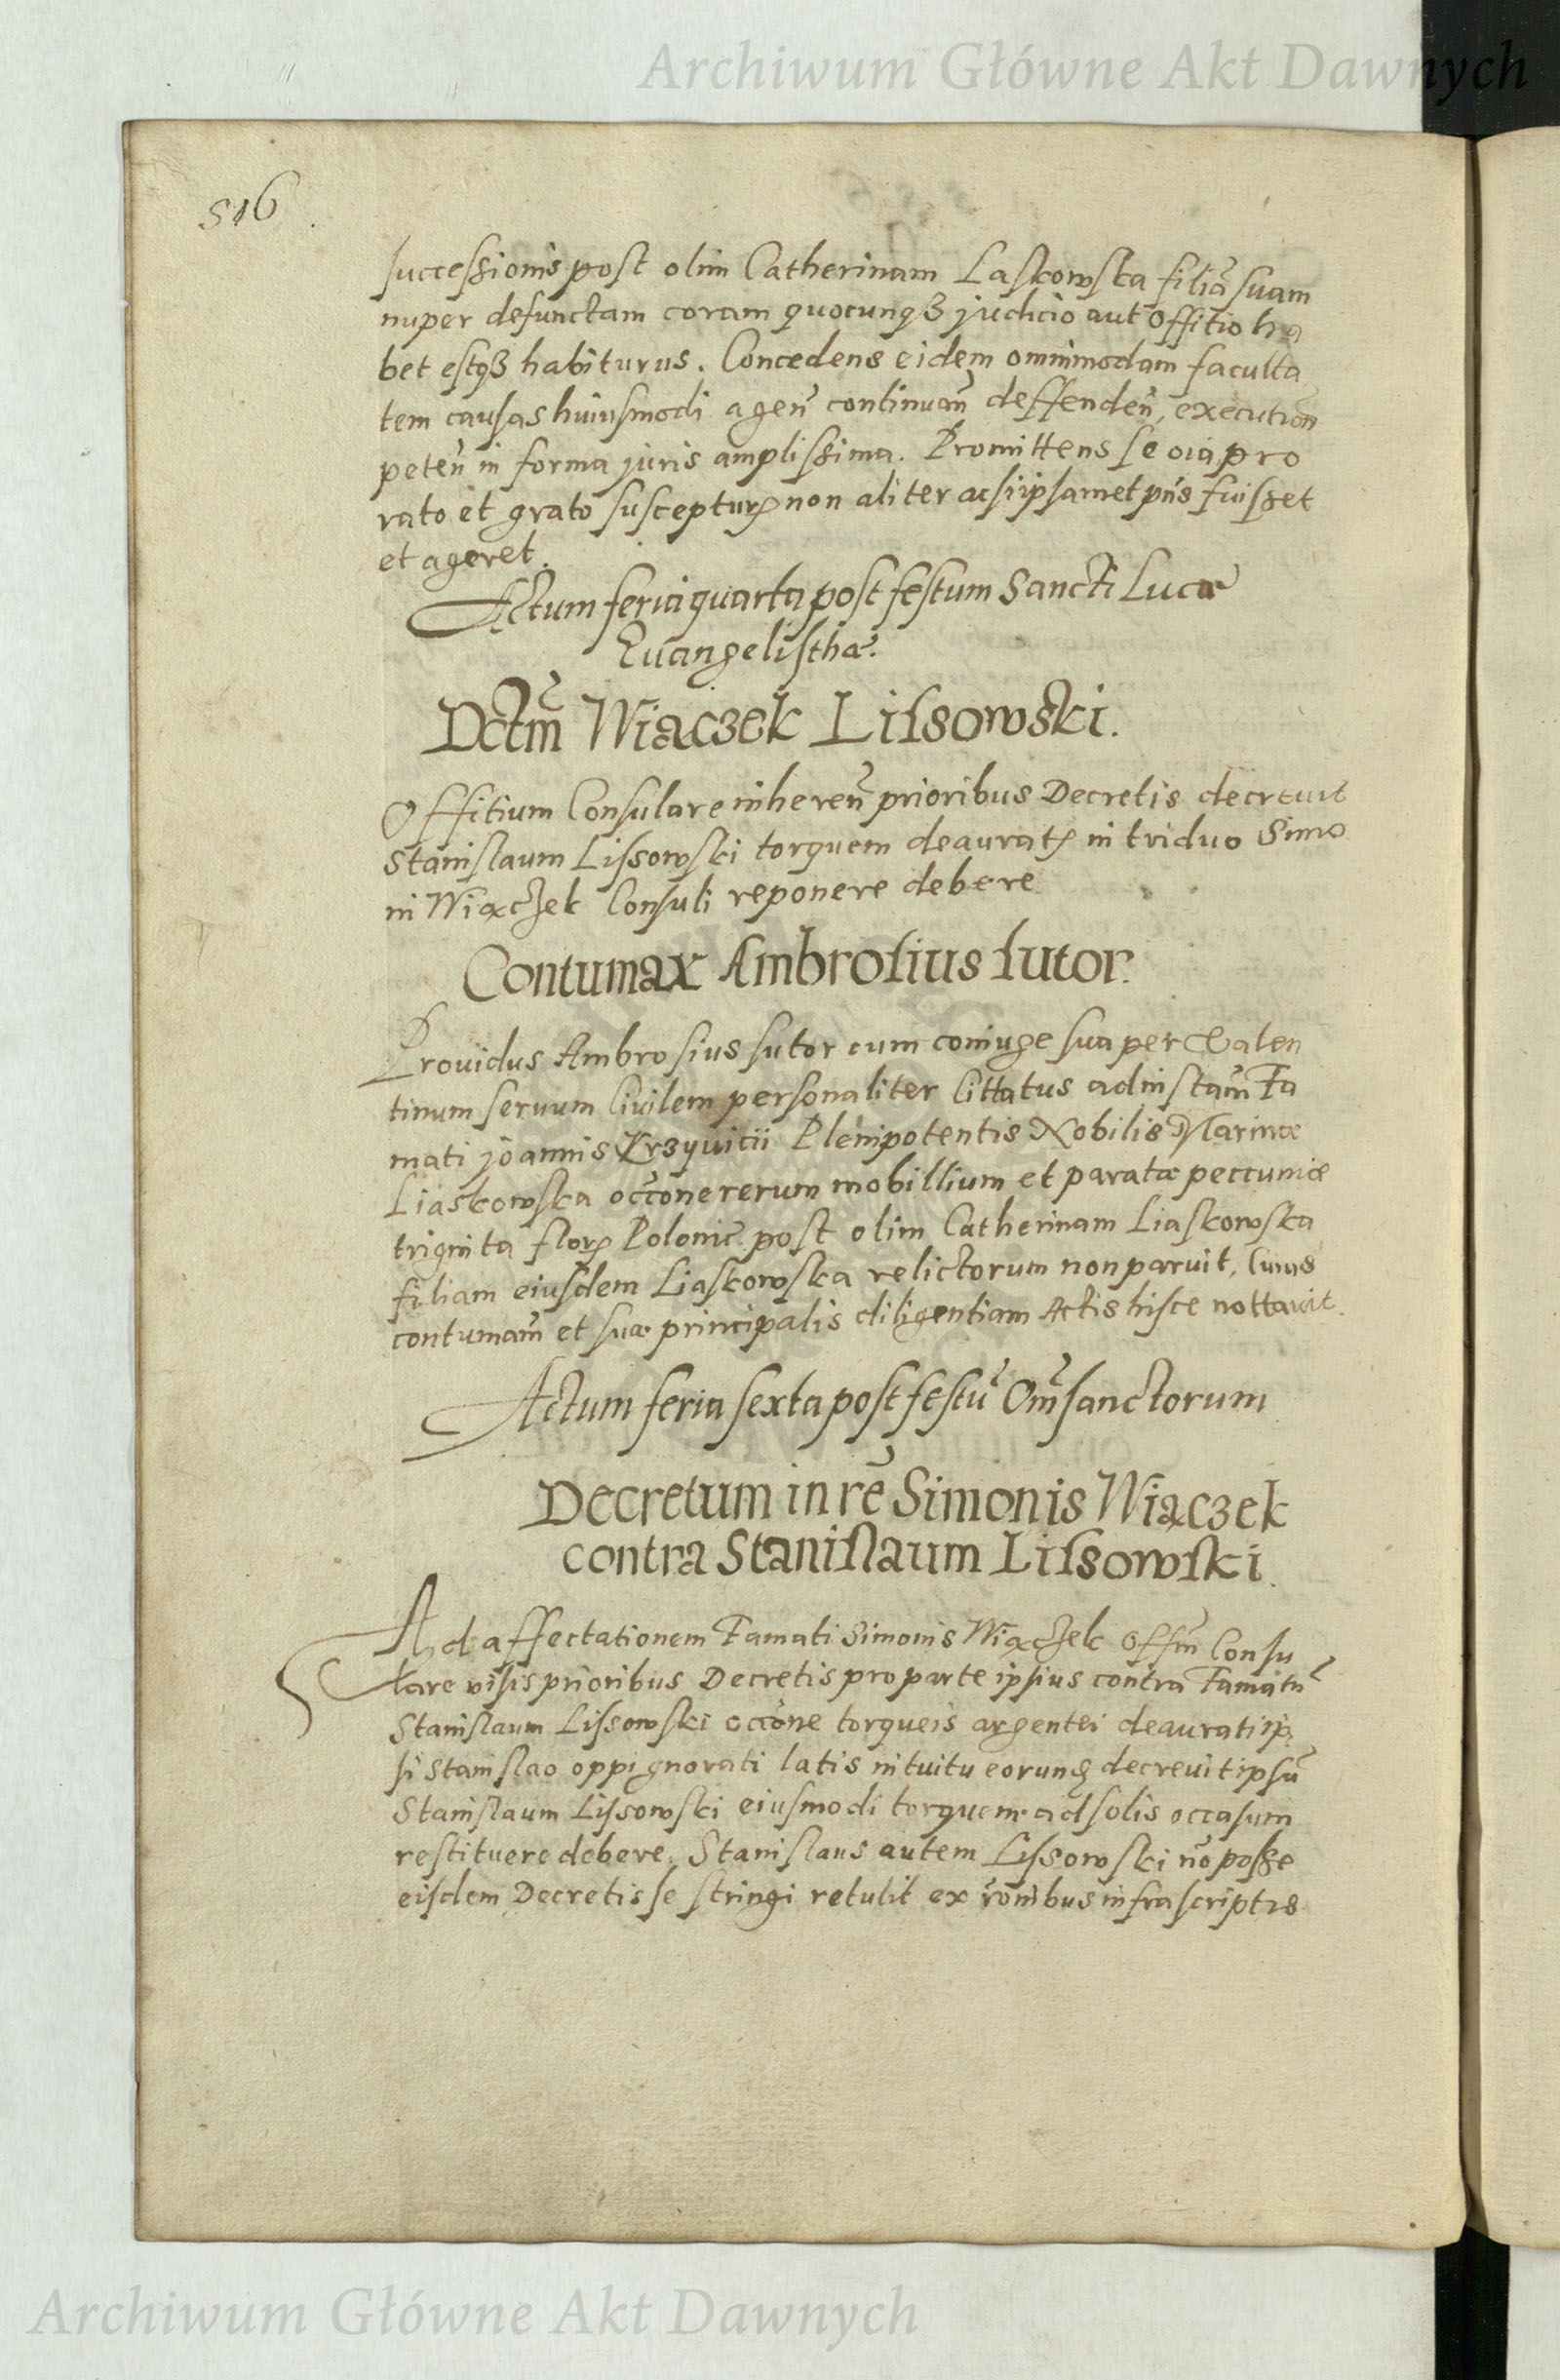 Archiwum Główne Akt Dawnych
516
successionis post olim Catherinam Laskowska filiā suam
nuper defunctam coram quocunqȝ judicio aut Offitio ha
bet estqȝ habiturus. Concedens eidem omnimodam faculta
tem causas huiusmodi ageñ continuañ deffendeñ, execution
peteñ in forma juris amplissima. Promittens se oīa pro
rato et grato susceptur̄ non aliter ac si ipsamet pn̄s fuisset
et ageret.
Actum feria quarta post festum Sancti Lucæ
Euangelisthæ.
Dctm̄ Wiączek Lissowski.
Offitium Consulare inhereñ prioribus Decretis decreuit
Stanislaum Lissowski torquem deaurat̄ in triduo Simo
ni Wiączek Consuli reponere debere
Contumax Ambrosius sutor.
Prouidus Ambrosius sutor cum coniuge sua per Valen
tinum seruum Ciuilem personaliter Cittatus ad instam̄ Fa
mati joannis Krzyuicii Plenipotentis Nobilis Marinæ
Liaskowska occōne rerum mobillium et paratæ peccuniæ
triginta flor̄ Polonic. post olim Catherinam Liaskowska
filiam eiusdem Liaskowska relictorum non paruit, Cuius
contumam̄ et suæ principalis diligentiam Actis hisce nottauit.
Actum feria sexta post festū Om̄ sanctorum
Decretum in rē Simonis Wiączek
contra Stanislaum Lissowski.
Ad affectationem Famati Simonis Wiączek Offm̄ Consu
lare visis prioribus Decretis pro parte ipsius contra Famatū
Stanislaum Lissowski occōne torqueis argentei deaurati ip
si Stanislao oppignorati latis intuitu eorunȝ decreuit ipsū
Stanislaum Lissowski eiusmodi torquem ad solis occasum
restituere debere. Stanislaus autem Lissowski nō posse
eisdem Decretis se stringi retulit ex rōnibus infrascriptis
Archiwum Główne Akt Dawnych